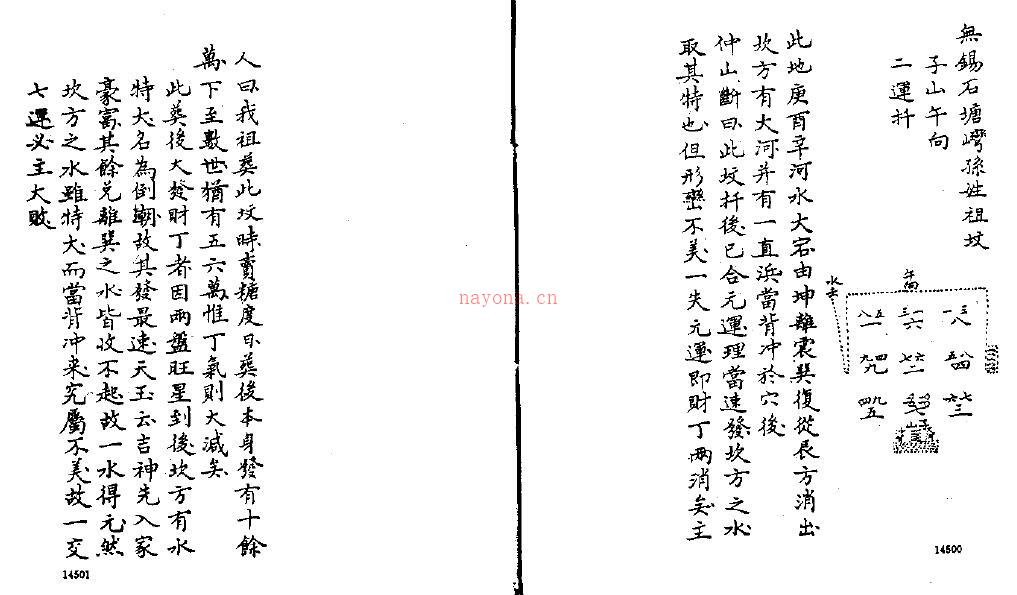 無錫石塘灣孫姓祖坟
子山午向
二運扦
午向
水去
此地庚酉辛河水大宕由坤離震巽復從辰方消出
坎方有大河并有一直浜當背冲於穴後
仲山斷曰此坟扦後已合元運理當速發坎方之水
取其特也但形巒不美一失元運即財丁兩消矣主
14500
人曰我祖葬此坟時賣糖度日葬後本身發有十餘
萬下至數世猶有五六萬惟丁氣則大減矣
此葬後大發財丁者因兩盤旺星到後坎方有水
特大名為倒潮故其發最速天玉云吉神先入家
豪富其餘兌離巽之水皆收不起故一水得元然
坎方之水雖特大而當背冲来究屬不美故一交
七運必主大敗
14501
nayona.cn